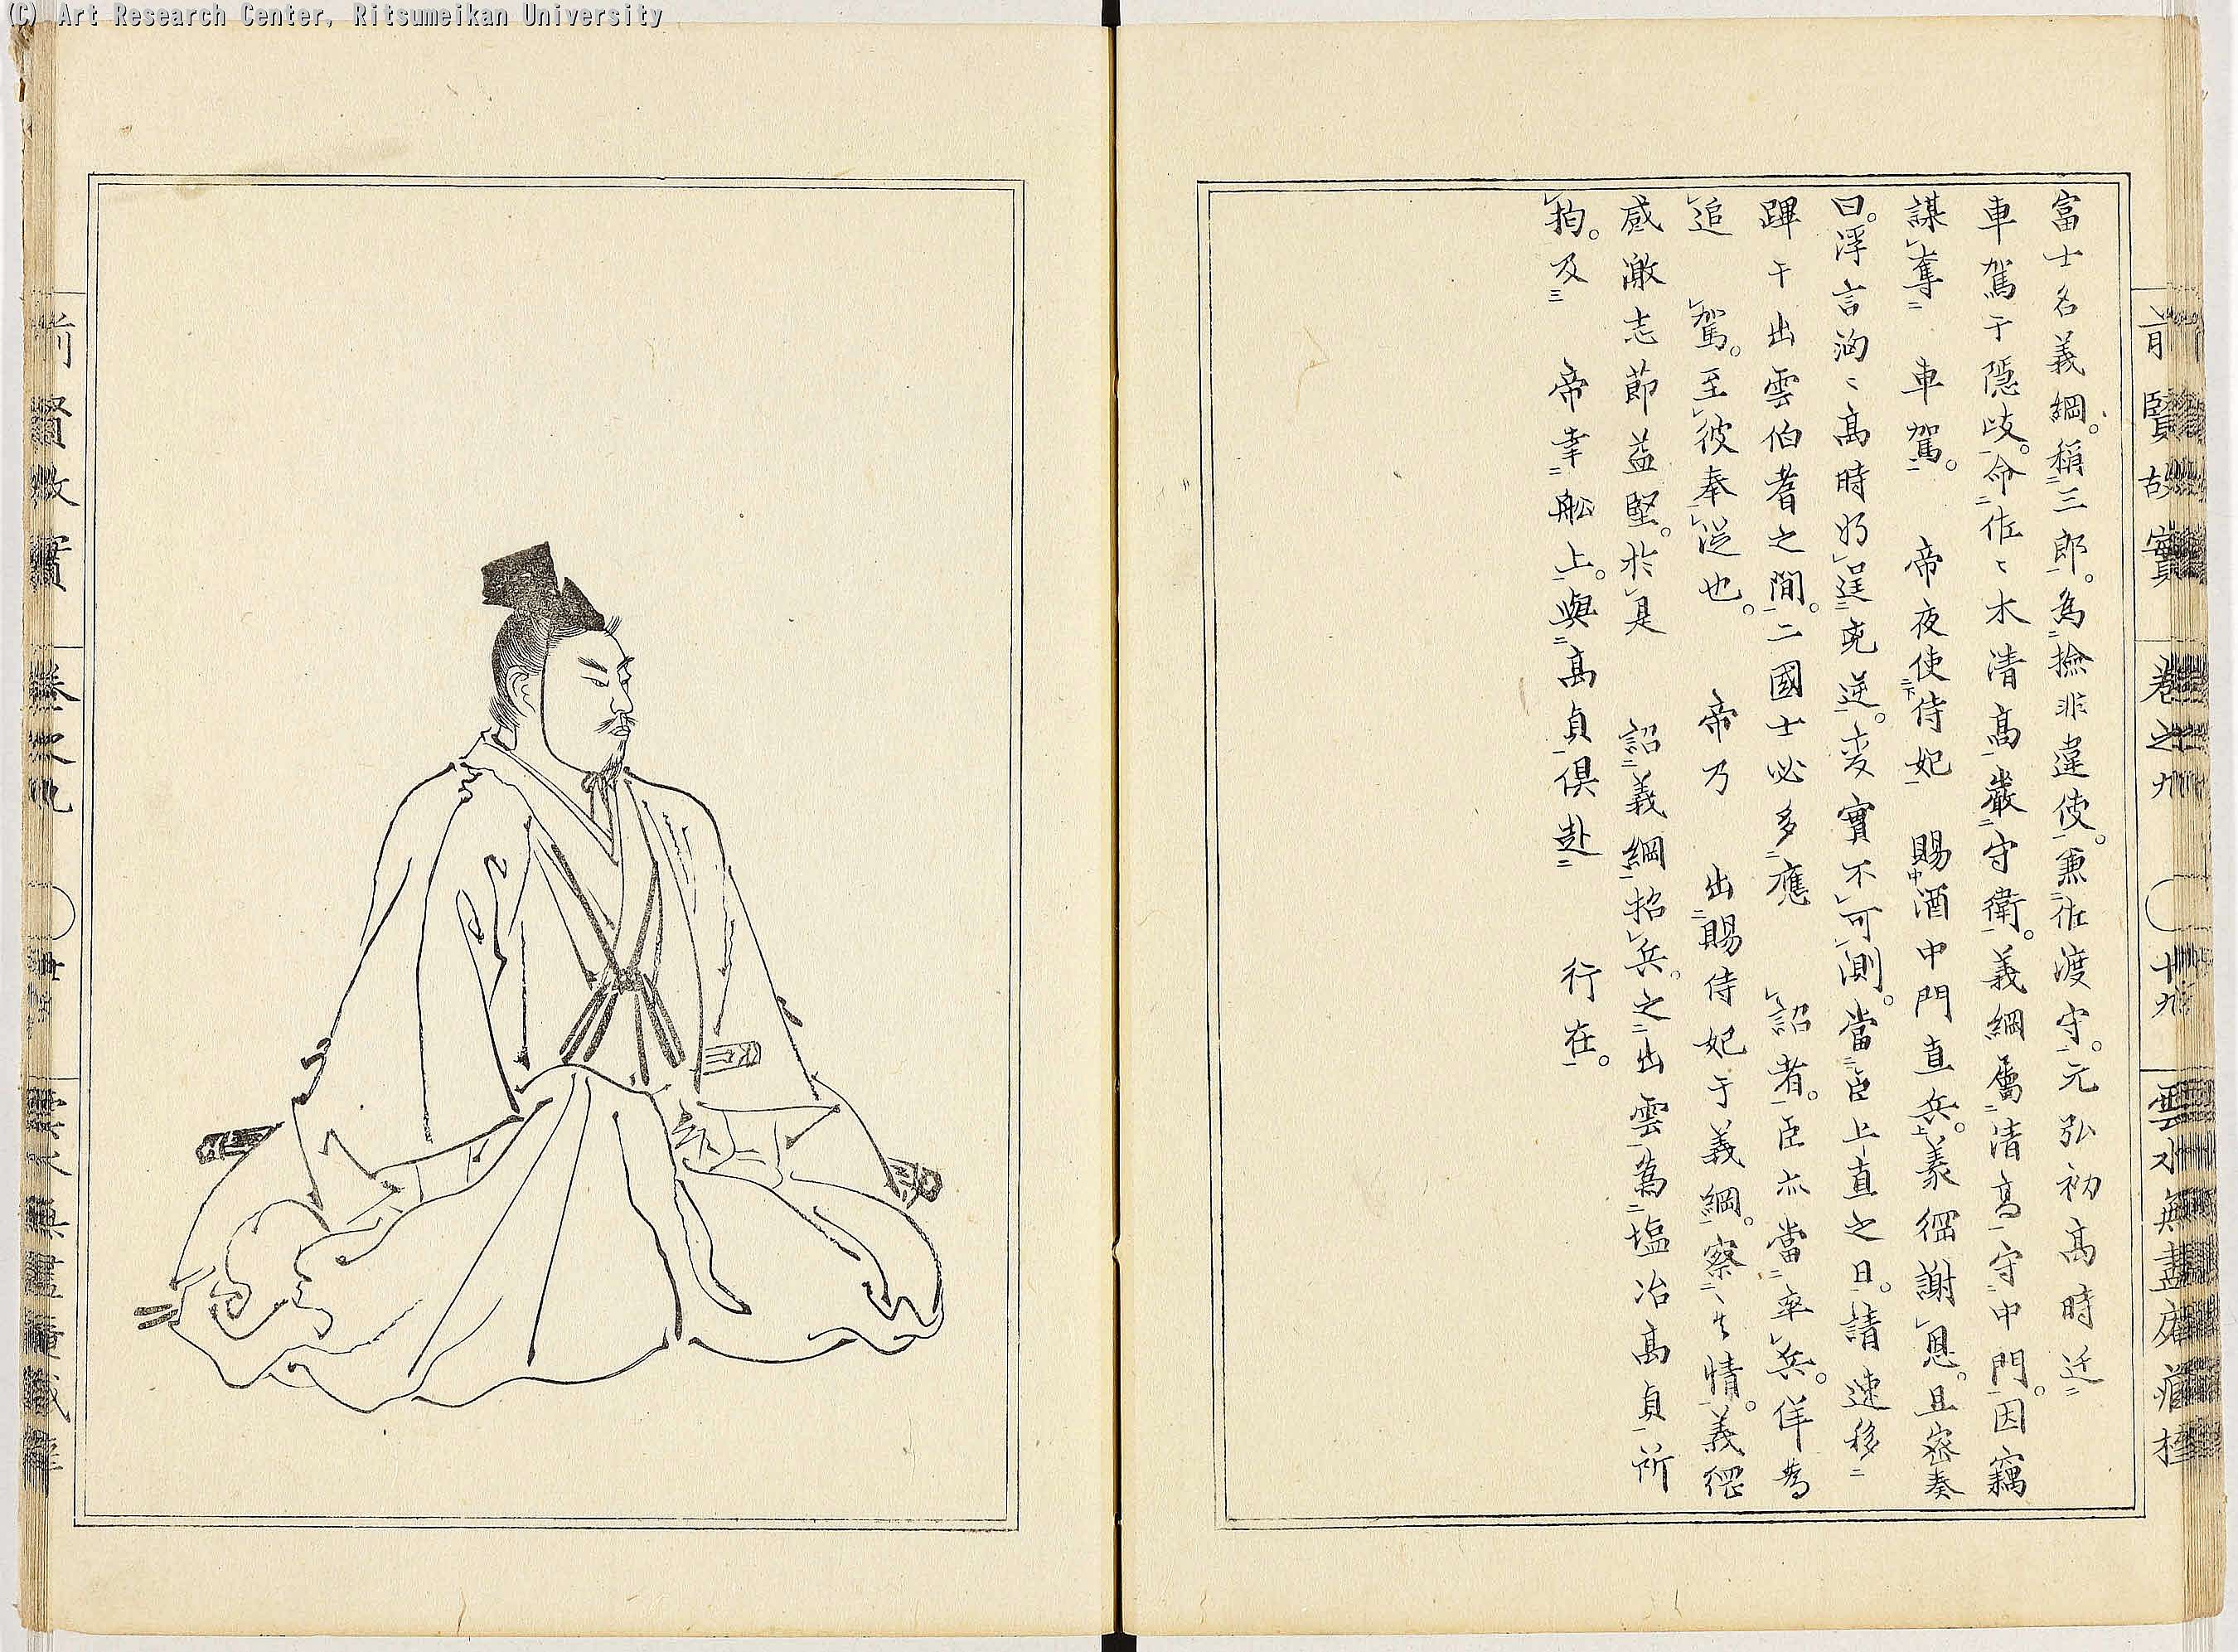 (C) Art Research Center, Ritsumeikan University
前賢故實 卷之九 十九 雲水無盡庵
富士名義綱。稱三郎。為撿非違使。兼佐渡守。元弘初高時迁
車駕于隠岐。命佐〻木清高嚴守衛。義綱屬清高守中門。因竊
謀奪 車駕。 帝夜使侍妃 賜酒中門直兵。義綱謝恩。且密奏
曰。浮言洶〻高時將逞兇逆。変實不可測。當臣上直之日。請速移
蹕于出雲伯耆之間。二國士必多應 詔者。臣亦當率兵。佯為
追 駕。至彼奉從也。 帝乃 出賜侍妃于義綱。察其情。義綱
感激志節益堅。於是 詔義綱招兵。之出雲為塩冶髙貞所
拘。及 帝幸舩上。與髙貞倶赴 行在。
前賢故實 卷之九